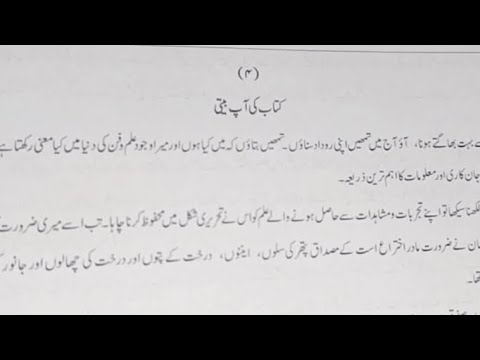 (۴)
کتاب کی آپ بیتی
سے بہت بھاگتے ہونا، آؤ آج میں تمھیں اپنی روداد سناؤں۔ تمھیں بتاؤں کہ میں کیا ہوں اور میرا وجود علم و فن کی دنیا میں کیا معنی رکھتا ہے
جان کاری اور معلومات کا اہم ترین ذریعہ۔
لکھنا سیکھا تو اپنے تجربات و مشاہدات سے حاصل ہونے والے علم کو اس نے تحریری شکل میں محفوظ کرنا چاہا۔ تب اسے میری ضرورت
ان نے ضرورت مادر اختراع است کے مصداق پتھر کی سلوں، اینٹوں، درخت کے پتوں اور درخت کی چھالوں اور جانور
تھا۔